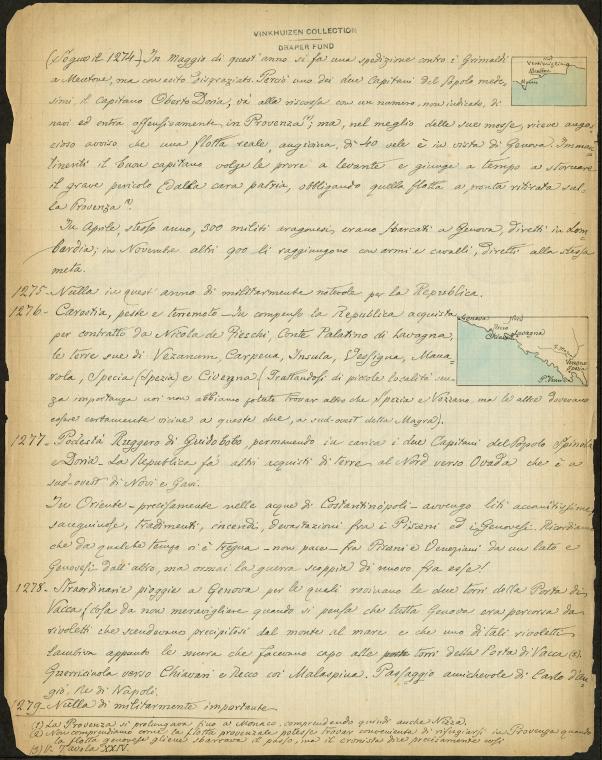 VINKHUIZEN COLLECTION
DRAPER FUND
(Segue il 1274) In Maggio di quest'anno si fa una spedizione contro i Grimaldi
a Mentone, ma con esito disgraziato. Perciò uno dei due Capitani del Popolo mede,
simi il capitano Oberto Doria, và alla riscossa con un numero, non indicato, di
navi ed entra offensivamente in Provenza (1); ma, nel meglio delle sue mosse, riceve ango,
scioso avviso che una flotta reale, angioina, di 40 vele è in vista di Genova. Imman,
tinenti il buon capitano volge le prore a levante e giunge a tempo a stornare
il grave pericolo dalla cara patria, obbligando quella flotta a pronta ritirata sul,
la Provenza (2).
In Aprile, stesso anno, 300 militi aragonesi, erano sbarcati a Genova, diretti in Lom,
bardia; in Novembre altri 900 li raggiungono con armi e cavalli, diretti alla stessa
meta.
1275- Nulla in quest'anno di militarmente notevole per la Repubblica.
1276- Carestia, peste e terremoto - In compenso la Repubblica acquista
per contratto da Nicola de Fieschi, Conte Palatino di Lavagna,
le terre sue di Vezanum, Carpena, Insula, Vesigna, Mana,
rola, Specia (Spezia) e Civegna (Trattandosi di piccole località sen,
za importanza noi non abbiamo potuto trovar altro che Spezia e Vezzano, ma le altre dovevano
essere certamente vicine a queste due, a sud-ovest della Magra).
1277- Podestà Ruggero di Guidobobo, permanendo in carica i due Capitani del Popolo Spinola
e Doria. La Repubblica fà altri acquisti di terre al Nord verso Ovada che è a
sud-ovest di Novi e Gavi.
In Oriente - precisamente nelle acque di Costantinopoli - avvengo liti accanitissime,
sanguinose, tradimenti, incendi, devastazioni fra i Pisani ed i Genovesi. Ricordiamo
che da qualche tempo vi è tregua - non pace - fra Pisani e Veneziani da un lato e
Genovesi dall'altro, ma ormai la guerra scoppia di nuovo fra esse!
1278- Straordinarie pioggie a Genova per le quali rovinano le due torri della Porta di
Vacca (cosa da non meravigliare quando si pensa che tutta Genova era percorsa da
rivoletti che scendevano precipitosi dal monte al mare e che uno di tali rivoletti
lambiva appunto le mura che facevano capo alle porte torri della Porta di Vacca (3).
Guerricciuola verso Chiavari e Recco coi Malaspina. Passaggio amichevole di Carlo d'An,
giò, Re di Napoli.
1279- Nulla di militarmente importante
(1) La Provenza si prolungava fino a Monaco, comprendendo quindi anche Nizza.
(2) Non comprendiamo come la flotta provenzale potesse trovar conveniente di rifugiarsi in Provenza quando
la flotta genovese gliene sbarrava il passo, ma il cronista dice precisamente così
(3) V. Tavola XXIV.
Ventimiglia
Mentone
Genova
Nord
Recco
Chiavari
Lavagna